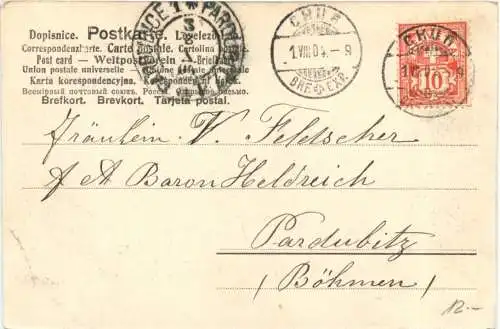 Dopisnice. Postkarte. Lavelezö
Correspondenzkarte. Carte postale. Cartolina postale.
Post card — Weltpostverein — Briefkaart
Union postale universelle — Unione postale universale
Karta Korespondencyjna. Korespondenční
Всемірный почтовый союзъ. Россія. Открытое письмо.
Brefkort. Brevkort. Tarjeta postal.
CHUR
1.VIII.04.-9
BRF. EXP.
CHUR
10
Fräulein V. Feldscher
A A Baron Heldreich
Pardubitz
(Böhmen)
12.-